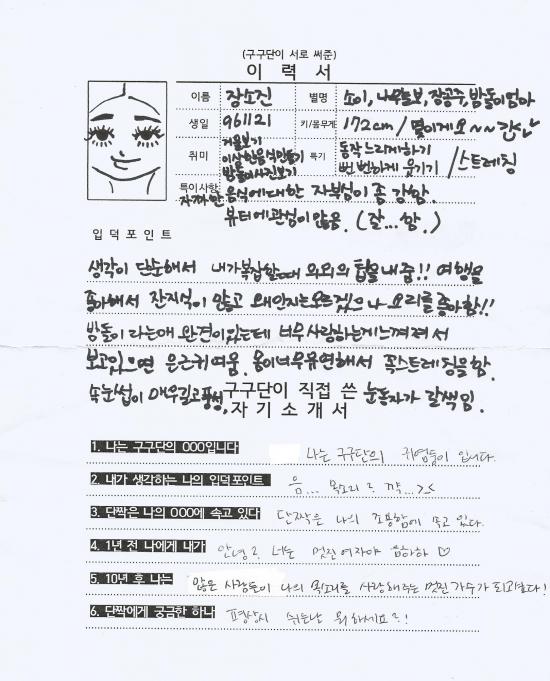 (구구단이 서로 써준)
이 력 서
이름 장소진 별명 소이, 나무늘보, 장공주, 밤돌이엄마
생일 961121 키/몸무게 172cm / 몇이게요~~ 칸칸
취미 거울보기 이상한음식만들기 밤돌이사진보기 특기 동작 느리게하기 뻔뻔하게 웃기기 / 스트레칭
특이사항 자까만 음식에 대한 자부심이 좀 강함.
뷰티에 관심이 많음. (잘...함.)
입덕포인트
생각이 단순해서 내가 복잡할때 의외의 팁을 내줌!! 여행을
좋아해서 잔지식이 많고 왜인지는모르겠으나 요리를 좋아함!!
밤돌이라는애완견이있는데 너무사랑하는게느껴져서
보고있으면 은근귀여움. 몸이너무유연해서 꼭스트레칭을함.
속눈썹이 매우길고풍성, 눈동자가 갈색임.
구구단이 직접 쓴
자기소개서
1. 나는 구구단의 OOO입니다 나는 구구단의 귀염둥이 입니다.
2. 내가 생각하는 나의 입덕포인트 음... 목소리? 꺅...><
3. 단짝은 나의 OOO에 속고 있다 단짝은 나의 조용함에 속고 있다.
4. 1년 전 나에게 내가 안녕? 너는 멋진여자야 음하하 ♡
5. 10년 후 나는 많은 사람들이 나의 목소리를 사랑해주는 멋진가수가 되고싶다!
6. 단짝에게 궁금한 하나 평상시 쉬는날 뭐하세요?!